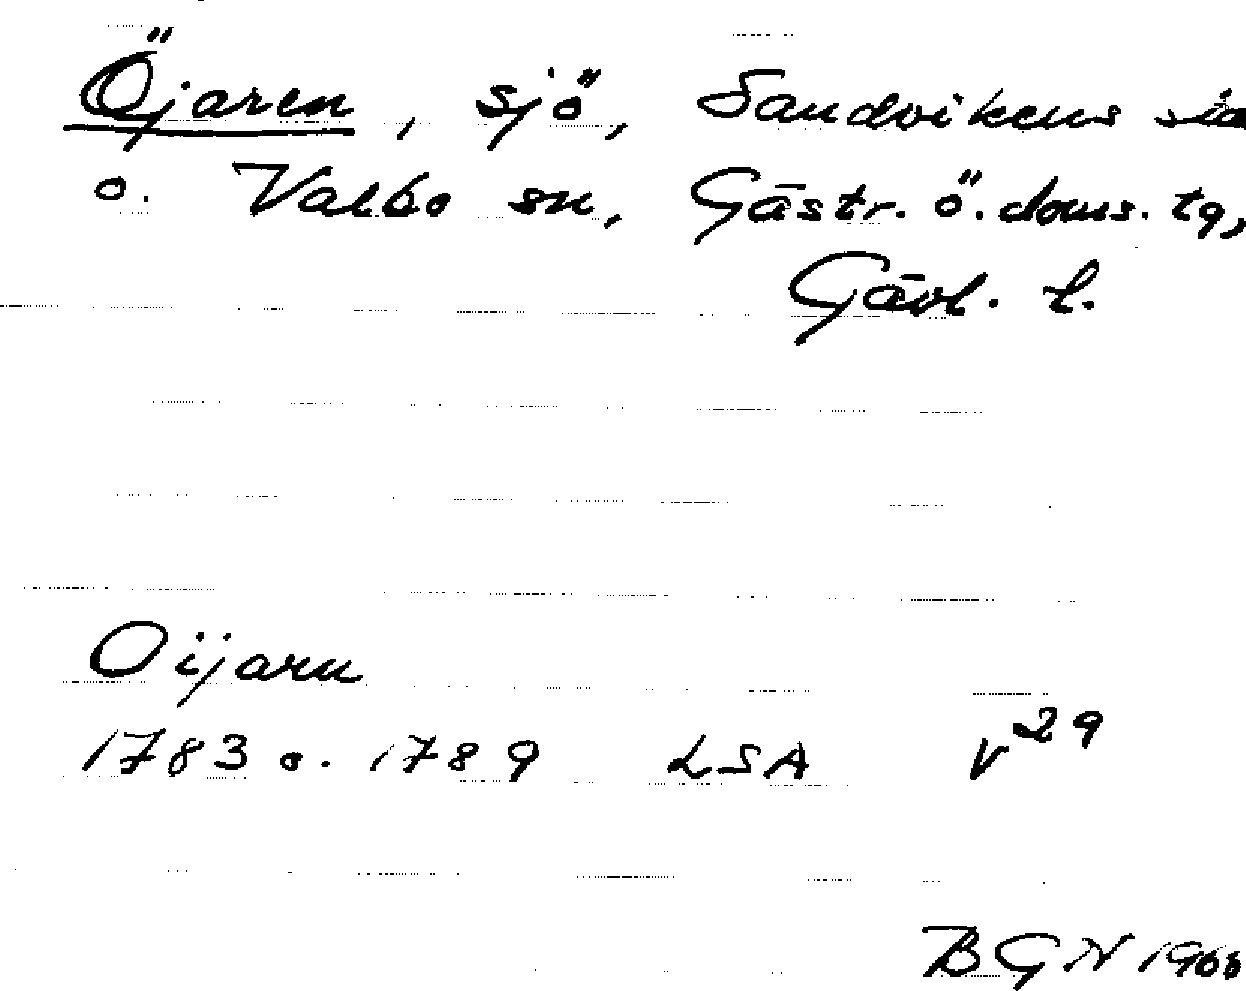 Öjaren, sjö, Sandvikens
o. Valbo sn, Gästr. ö. doms. tg,
Gävl. l.
Oijarn
1783 o. 1789 LSA V 29
BGN